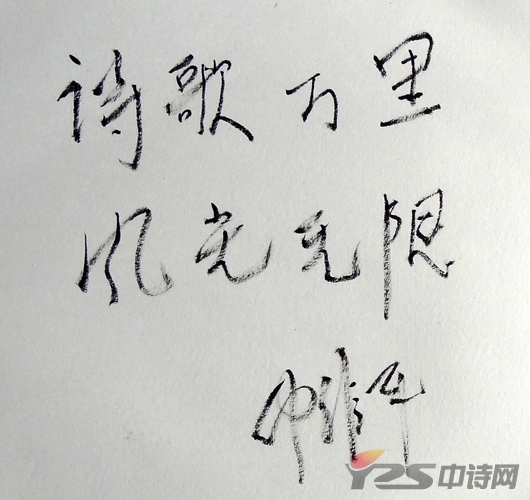 诗歌万里
风光无限
YZS中诗网